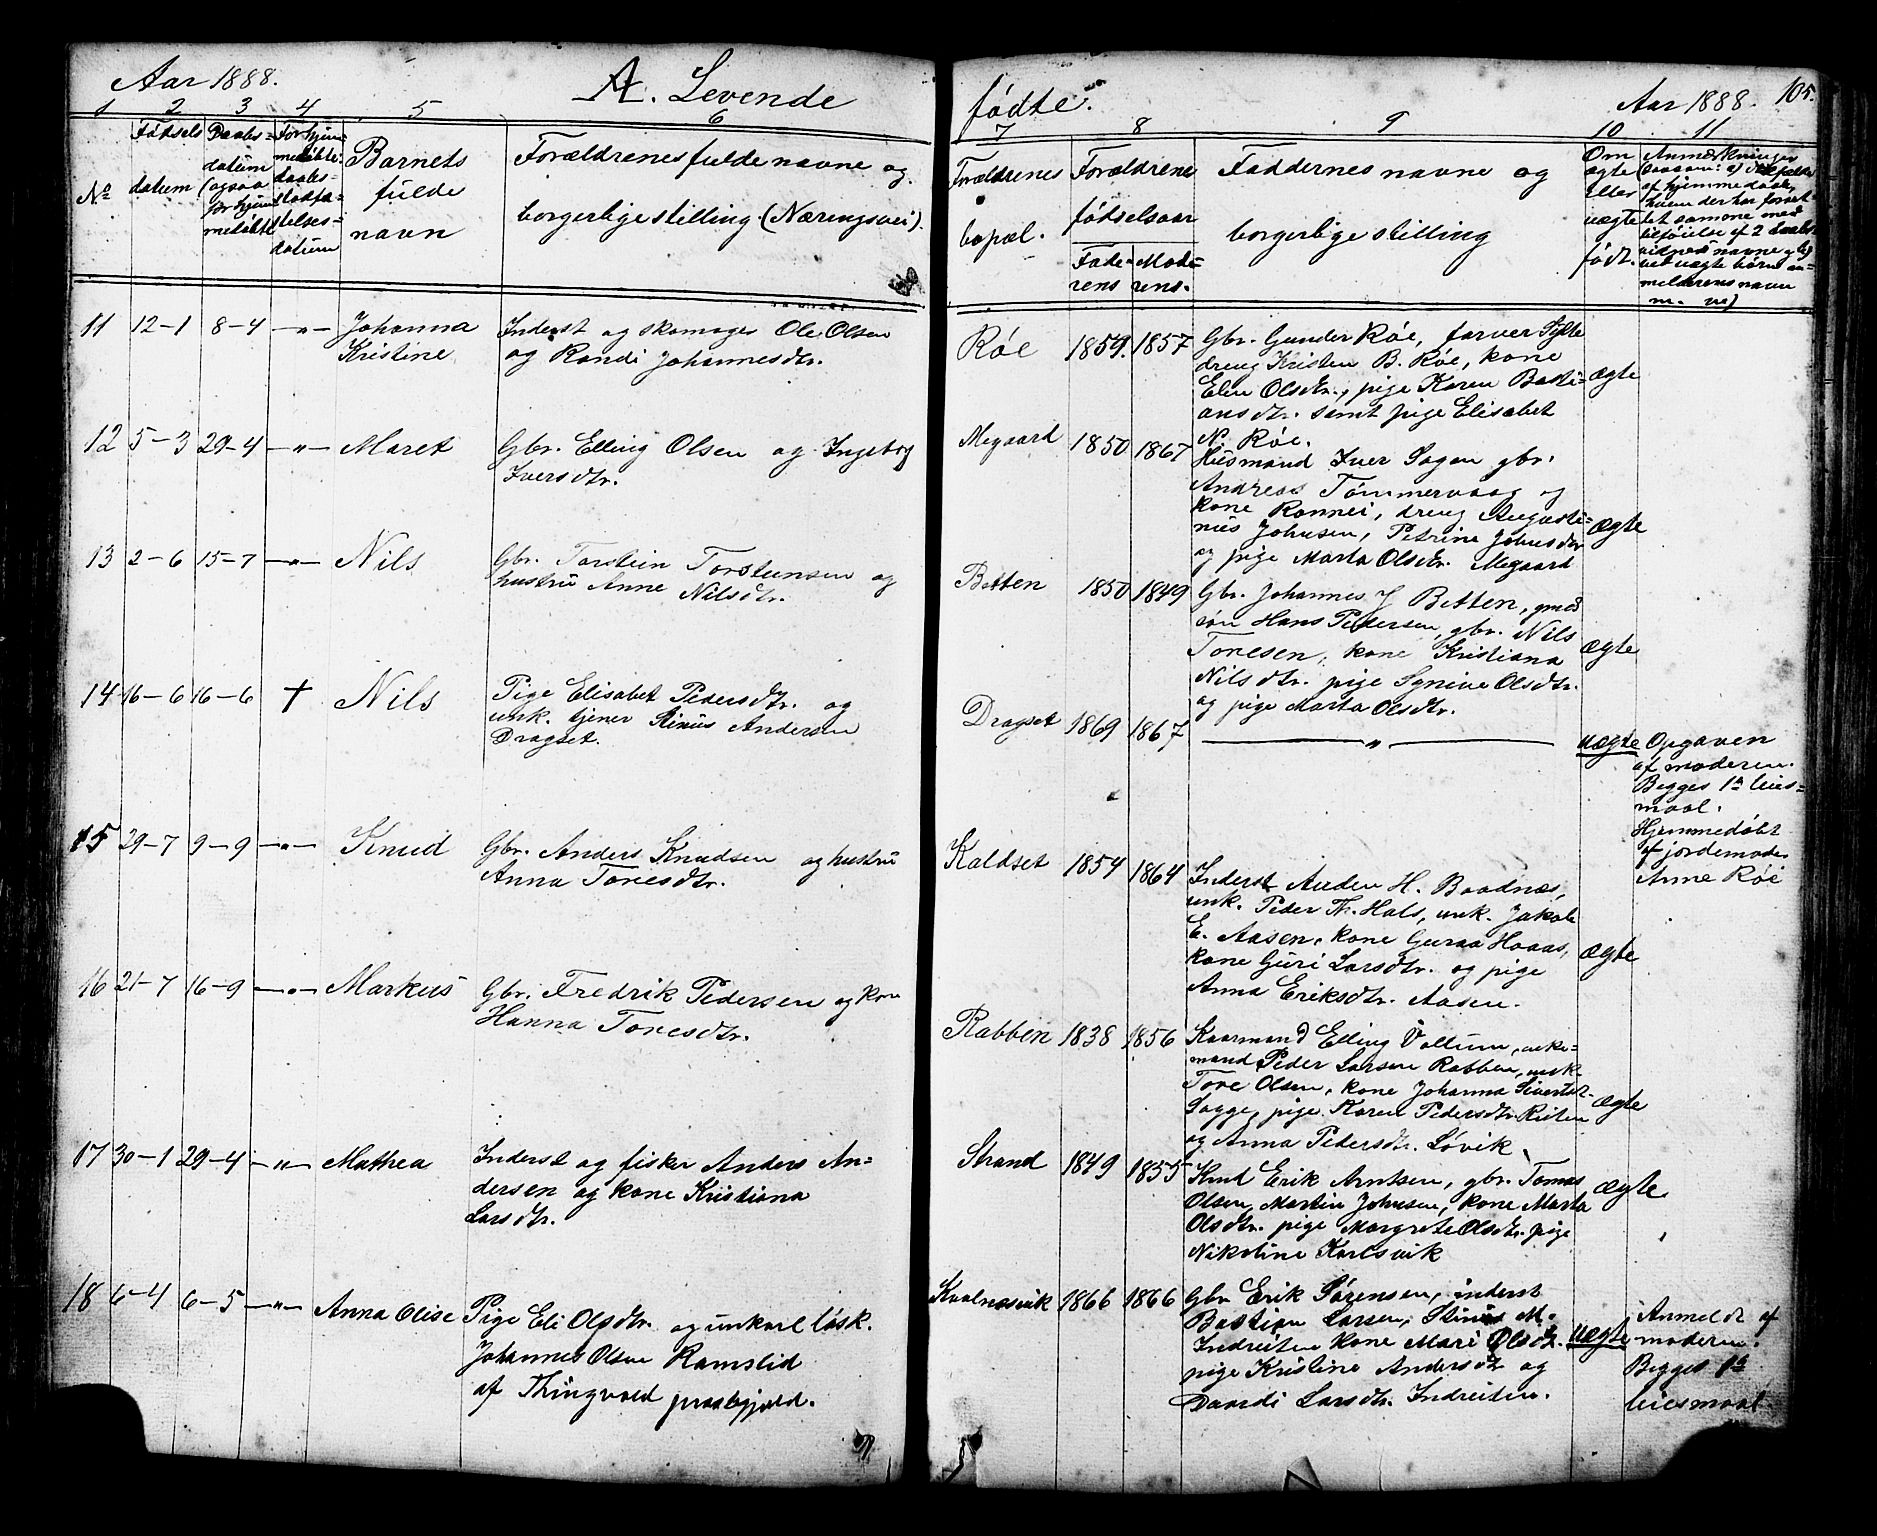 Aar 1888.
A. Levende
1 2 3 4 5 6
No
Fødsels
datum
Daabs=
datum
(ogsaa
for hjem
medøbte
For hjem=
medøbte:
daabs=
stadfæ=
telses=
datum
Barnets
fulde
navn
Forældrenes fulde navne og
borgerlige stilling (Næringsvei).
11 12-1 8-4 -"- Johanna
Kristine
Inderst og skomager Ole Olsen
og Randi Johannesdtr.
12 5-3 29-4 -"- Maret
Gbr. Elling Olsen og Ingeborg
Iversdtr.
13 2-6 15-7 -"- Nils
Gbr. Torstein Torstensen og
hustru Anne Nilsdtr.
14 16-6 16-6 † Nils
Pige Elisabet Pedersdtr. og
unk. tjener Rinus Andersen
Dragset.
15 29-7 9-9 -"- Knud
Gbr. Anders Knudsen og hustru
Anna Toresdtr.
16 21-7 16-9 -"- Markus
Gbr. Fredrik Pedersen og kone
Hanna Toresdtr.
17 30-1 29-4 -"- Mathea
Inderst og fisker Anders An=
dersen og kone Kristiana
Larsdtr.
18 6-4 6-5 -"- Anna Olise
Pige Eli Olsdtr. og unkarl løsk.
Johannes Olsen Ramslid
af Thingvold præstegjæld.
fødte.
Aar 1888. 105.
7 8 9 10 11
Forældrenes
bopæl.
Forældrene
fødselsaar
Fade=
rens
Mode=
rens.
Faddernes navne og
borgerlige stilling
Om
ægte
eller
uægte
født.
Anmærkninger
af hjemmedaab,
hvem der har forret
tet samme med
tilføielse af 2 daabs
vidners navne og b)
ved uægte børn an=
melderens navn
m. m)
Røe 1859. 1857
Gbr. Gunder Røe, farver
dreng Kristen B. Røe, kone
Elen Olsdtr., pige Karen Basti=
ansdtr. samt pige Elisabet
N. Røe.
ægte
Megaard 1850 1867
Husmand Iver Sagen gbr.
Andreas Tømmervaag og
kone Rannei, dreng Augusti=
nus Johnsen, Petrine Johnsdtr
og pige Marta Olsdtr. Megaard
ægte
Betten 1850 1849
Gbr. Johannes J Betten, gmds
søn Hans Pedersen, gbr. Nils
Toresen, kone Kristiana
Nilsdtr. pige Synive Olsdtr.
og pige Marta Olsdtr.
ægte
Dragset 1869 1867
-"-
uægte
Opgaven
af moderen.
Begges 1ste leies=
maal.
Hjemmedøbt
af jordemoder
Anne Røe
Kaldset 1854 1864
Inderst Auden H. Baadnæs,
unk. Peder Th. Hals, unk. Jakob
E. Aasen, kone Guraa Haaas,
kone Guri Larsdtr. og pige
Anna Eriksdtr. Aasen.
ægte
Rabben 1838 1856
Kaarmand Elling Vollum, enke=
mand Peder Larsen Rabben, unk.
Tore Olsen, kone Johanna Sivertsd.
Sagge, pige Karen Pedersdtr. Reiten
og Anna Pedersdtr. Løvik.
ægte
Strand 1849 1855
Knut Erik Arntsen, gbr. Tomas
Olsen, Martin Johnsen, kone Marta
Olsdtr. pige Margrete Olsdtr. pige
Nikoline Karlsvik
ægte
Kvalnæsvik 1866 1866
Gbr Erik Sørensen, inderst
Bastian Larsen, Stinus M.
Indreiten kone Mari Olsdtr.
pige Kristine Andersdtr og
Larsdtr. Indreiten.
uægte
Anmeldt af
moderen.
Begges 1ste
leiesmaal